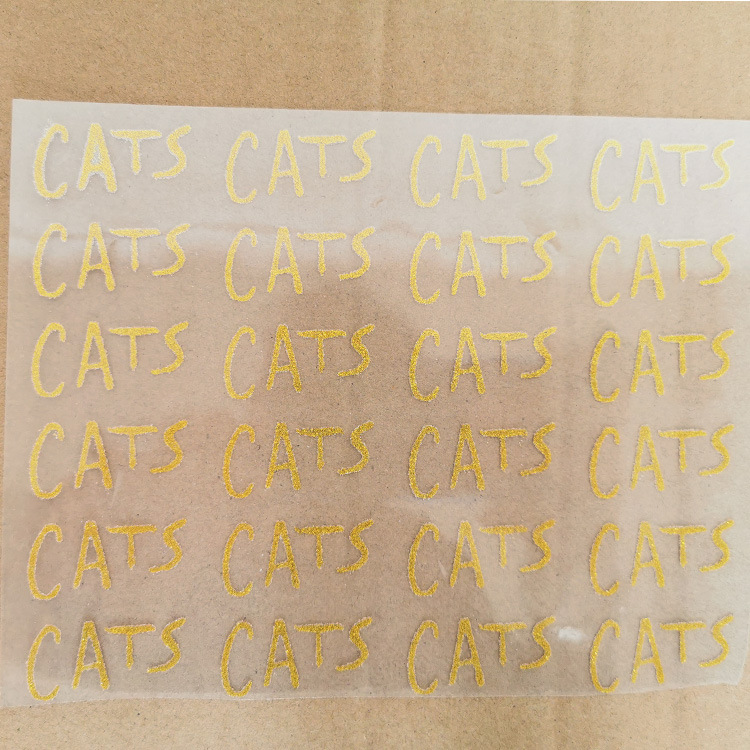 CATS CATS CATS CATS
CATS CATS CATS CATS
CATS CATS CATS CATS
CATS CATS CATS CATS
CATS CATS CATS CATS
CATS CATS CATS CATS